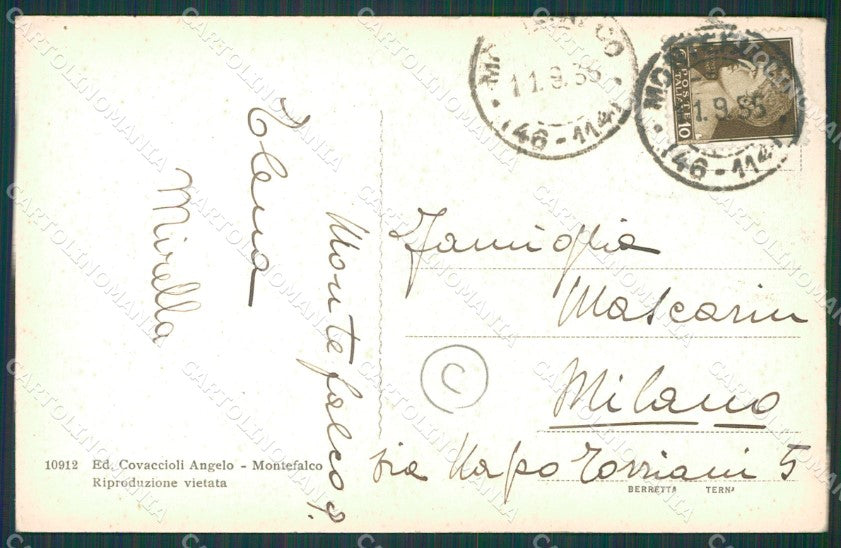 MONTEFALCO
11.9.35
(46-114)
MONTEFALCO
11.9.35
(46-114)
POSTE ITALIANE
10
Elena
Mirella
Montefalco 9.
Famiglia
Mascarin
Milano
via Napo Torriani 5
C
10912 Ed. Covaccioli Angelo - Montefalco
Riproduzione vietata
BERRETTA TERNI
CARTOLINOMANIA